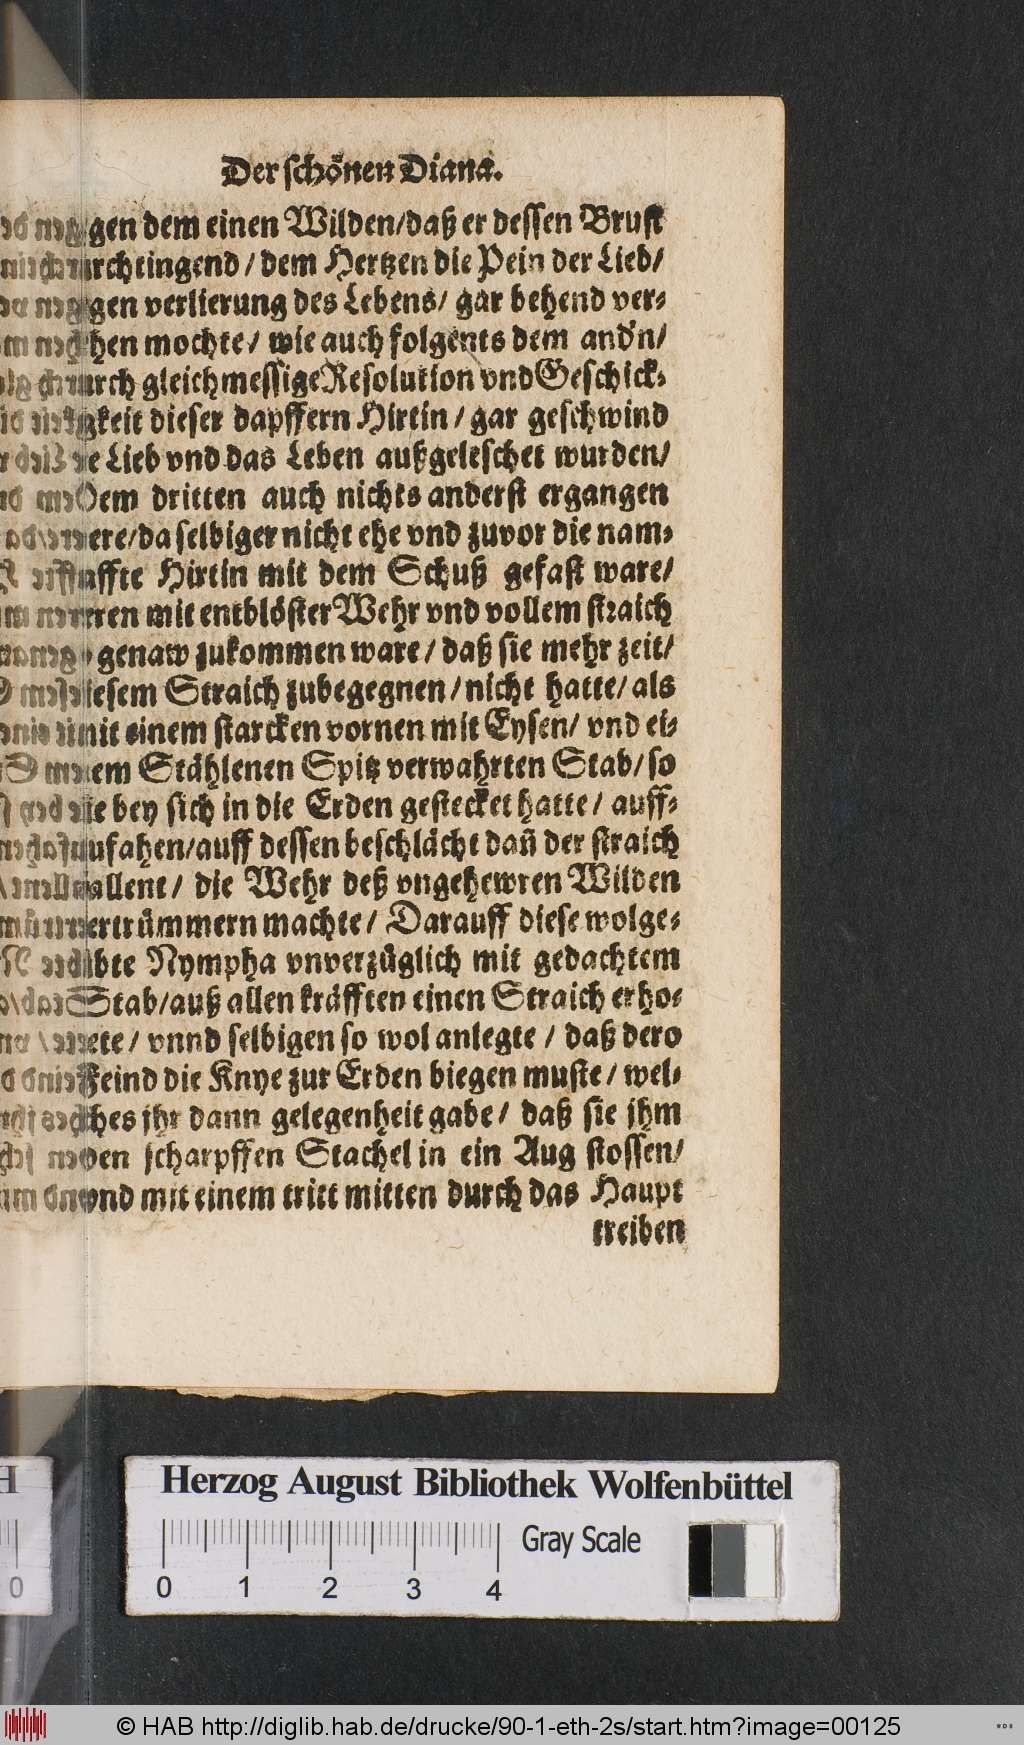 Der schönen Diana.
gen dem einen Wilden/daß er dessen Brust
durchtringend/dem Hertzen die Pein der Lieb/
gen verlierung des Lebens/ gar behend ver-
hen mochte/ wie auch folgents dem and'n/
durch gleichmessige Resolution vnd Geschick-
igkeit dieser dapffern Hirtin/ gar geschwind
Lieb vnd das Leben außgeleschet wurden/
Dem dritten auch nichts anderst ergangen
were/da selbiger nicht ehe vnd zuvor die nam-
haffte Hirtin mit dem Schuß gefast ware/
mit entblöster Wehr vnd vollem straich
genaw zukommen ware/ daß sie mehr zeit/
diesem Straich zubegegnen/nicht hatte/ als
mit einem starcken vornen mit Eysen/ vnd ei-
nem Stählenen Spitz verwahrten Stab/so
sie bey sich in die Erden gestecket hatte/ auff-
zufahen/auff dessen beschlächt dañ der straich
fallent/ die Wehr deß vngehewren Wilden
zertrümmern machte/ Darauff diese wolge-
übte Nympha vnverzüglich mit gedachtem
Stab/auß allen kräfften einen Straich erho-
lete/ vnnd selbigen so wol anlegte/ daß dero
Feind die Knye zur Erden biegen muste/ wel-
ches jhr dann gelegenheit gabe/ daß sie jhm
den scharpffen Stachel in ein Aug stossen/
vnd mit einem tritt mitten durch das Haupt
treiben
Herzog August Bibliothek Wolfenbüttel
Gray Scale
0 1 2 3 4
0
© HAB http://diglib.hab.de/drucke/90-1-eth-2s/start.htm?image=00125